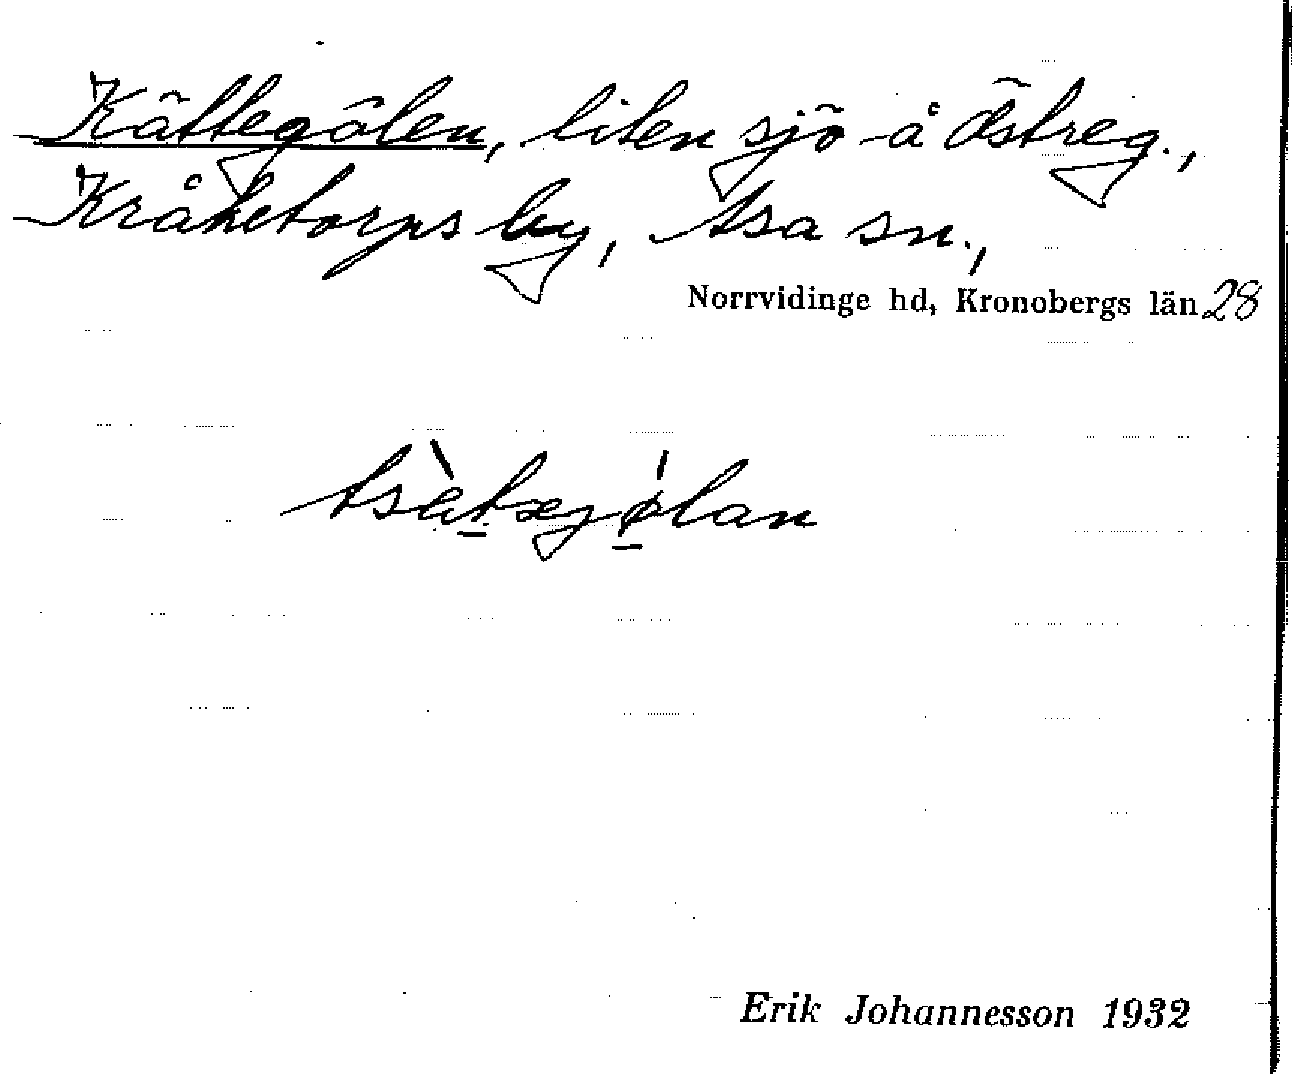 Kättegölen, liten sjö å östreg.,
Kråketorps by, Asa sn.,
Norrvidinge hd, Kronobergs län 28
Erik Johannesson 1932